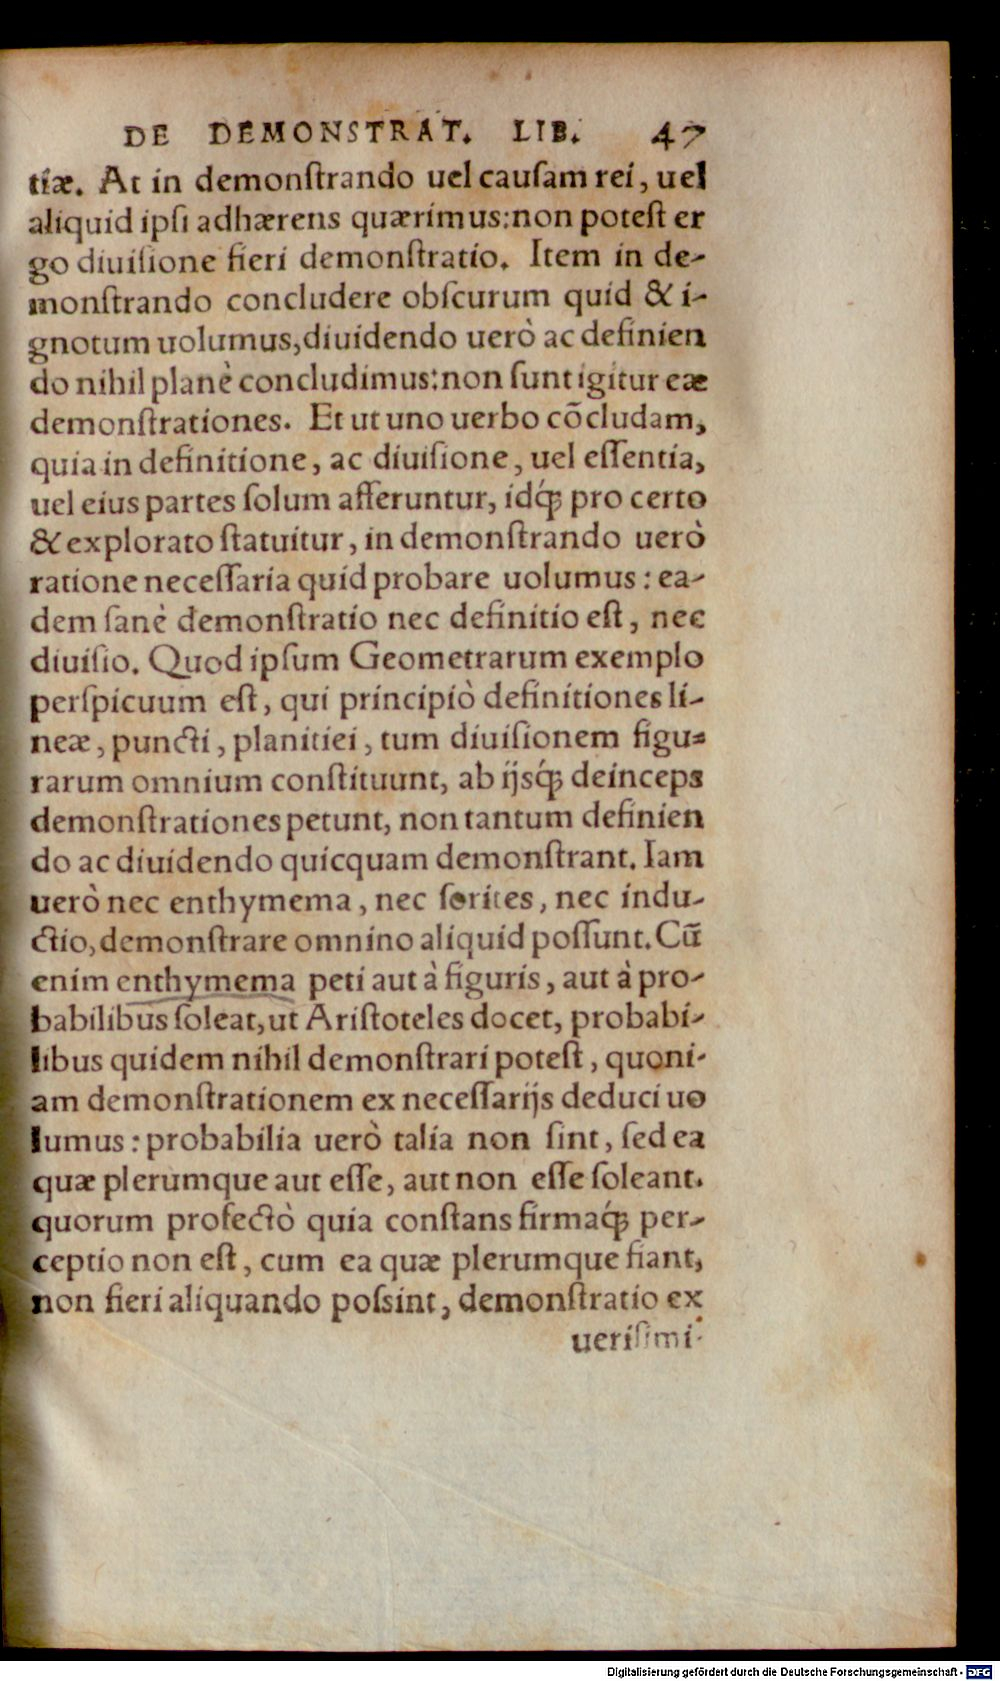 DE DEMONSTRAT. LIB. 47
tiæ. At in demonſtrando uel cauſam rei, uel
aliquid ipſi adhærens quærimus: non poteſt er
go diuiſione fieri demonſtratio. Item in de-
monſtrando concludere obſcurum quid & i-
gnotum uolumus, diuidendo uerò ac definien
do nihil planè concludimus: non ſunt igitur eæ
demonſtrationes. Et ut uno uerbo cõcludam,
quia in definitione, ac diuiſione, uel eſſentia,
uel eius partes ſolum afferuntur, idq́ꝫ pro certo
& explorato ſtatuitur, in demonſtrando uerò
ratione neceſſaria quid probare uolumus: ea-
dem ſanè demonſtratio nec definitio eſt, nec
diuiſio. Quod ipſum Geometrarum exemplo
perſpicuum eſt, qui principiò definitiones li-
neæ, puncti, planitiei, tum diuiſionem figu-
rarum omnium conſtituunt, ab ijsq́ꝫ deinceps
demonſtrationes petunt, non tantum definien
do ac diuidendo quicquam demonſtrant. Iam
uerò nec enthymema, nec ſorites, nec indu-
ctio, demonſtrare omnino aliquid poſſunt. Cũ
enim enthymema peti aut à figuris, aut à pro-
babilibus ſoleat, ut Ariſtoteles docet, probabi-
libus quidem nihil demonſtrari poteſt, quoni-
am demonſtrationem ex neceſſarijs deduci uo
lumus: probabilia uerò talia non ſint, ſed ea
quæ plerumque aut eſſe, aut non eſſe ſoleant.
quorum profectò quia conſtans firmaq́ꝫ per-
ceptio non eſt, cum ea quæ plerumque fiant,
non fieri aliquando poſsint, demonſtratio ex
ueriſimi-
Digitalisierung gefördert durch die Deutsche Forschungsgemeinschaft - DFG